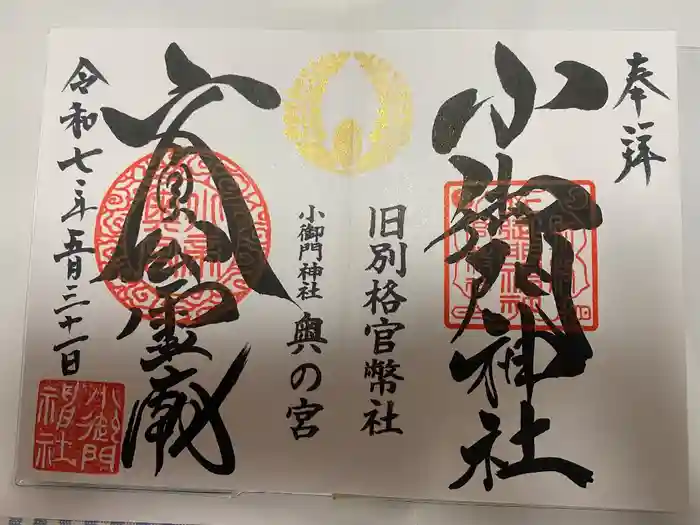 奉拝
小御門神社
旧別格官幣社
小御門神社
奥の宮
令和七年五月三十一日
小御門
神社